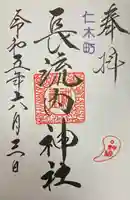 奉拝
仁木町
長流内神社
令和五年六月三日